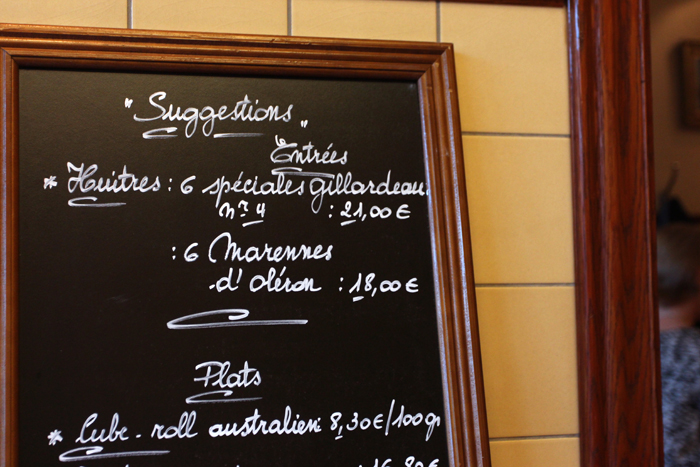 "Suggestions"
Entrées
* Huitres : 6 spéciales Gillardeau
n° 4 : 21,00 €
: 6 Marennes
d'Oléron : 18,00 €
Plats
* Cube-roll australien: 8,30€/100gr
: 16,80€